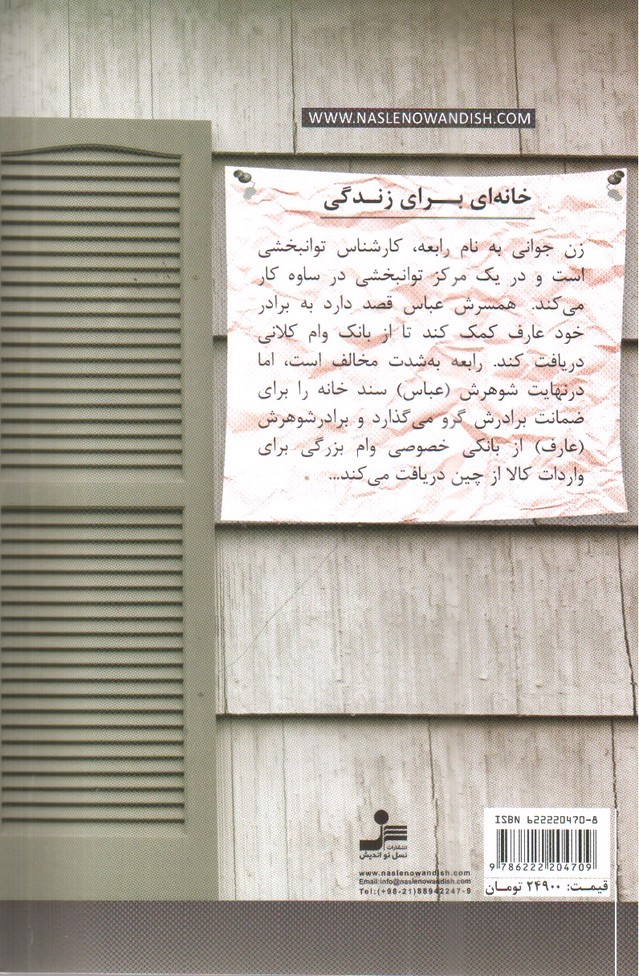 WWW.NASLENOWANDISH.COM
خانه‌ای بـــرای زنـدگی
زن جوانی به نام رابعه، کارشناس توانبخشی
است و در یک مرکز توانبخشی در ساوه کار
می‌کند. همسرش عباس قصد دارد به برادر
خود عارف کمک کند تا از بانک وام کلانی
دریافت کند. رابعه به‌شدت مخالف است، اما
درنهایت شوهرش (عباس) سند خانه را برای
ضمانت برادرش گرو می‌گذارد و برادرشوهرش
(عارف) از بانکی خصوصی وام بزرگی برای
واردات کالا از چین دریافت می‌کند...
ISBN 622220470-8
9 786222 204709
قیمت: ۲۴۹۰۰ تومان
انتشارات
نسل نو اندیش
www.naslenowandish.com
Email:info@naslenowandish.com
Tel:(+98-21)88942247-9